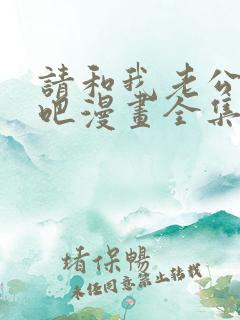 請和我老公
吧漫畫全集
堵保暢
未任同意禁止转载